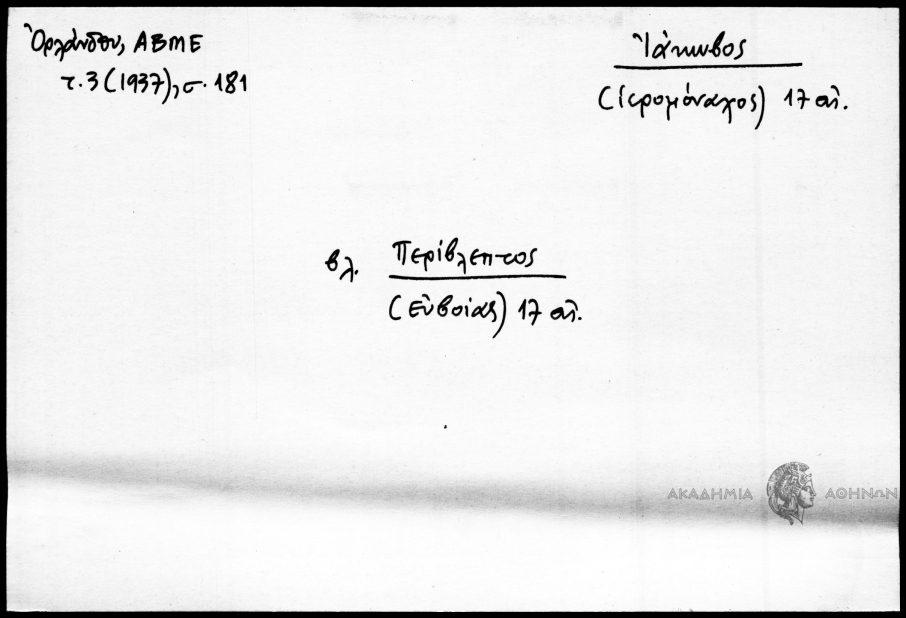 Ὀρλάνδου, ΑΒΜΕ
τ. 3 (1937), σ. 181
Ἰάκωβος
(ἱερομόναχος) 17 αἰ.
βλ. Περίβλεπτος
(Εὐβοίας) 17 αἰ.
ΑΚΑΔΗΜΙΑ ΑΘΗΝΩΝ